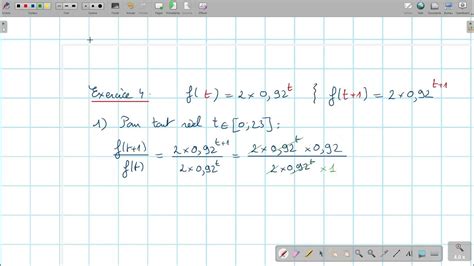 Exercice 4. f(t) = 2 × 0,92^t { f(t+1) = 2 × 0,92^{t+1}
1) Pour tout réel t ∈ [0;23] :
f(t+1)/f(t) = (2 × 0,92^{t+1})/(2 × 0,92^t) = (2 × 0,92^t × 0,92)/(2 × 0,92^t × 1)